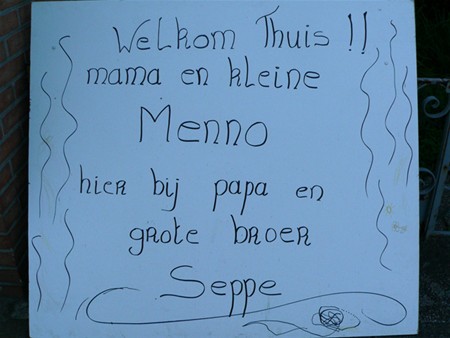 Welkom Thuis !!
mama en kleine
Menno
hier bij papa en
grote broer
Seppe